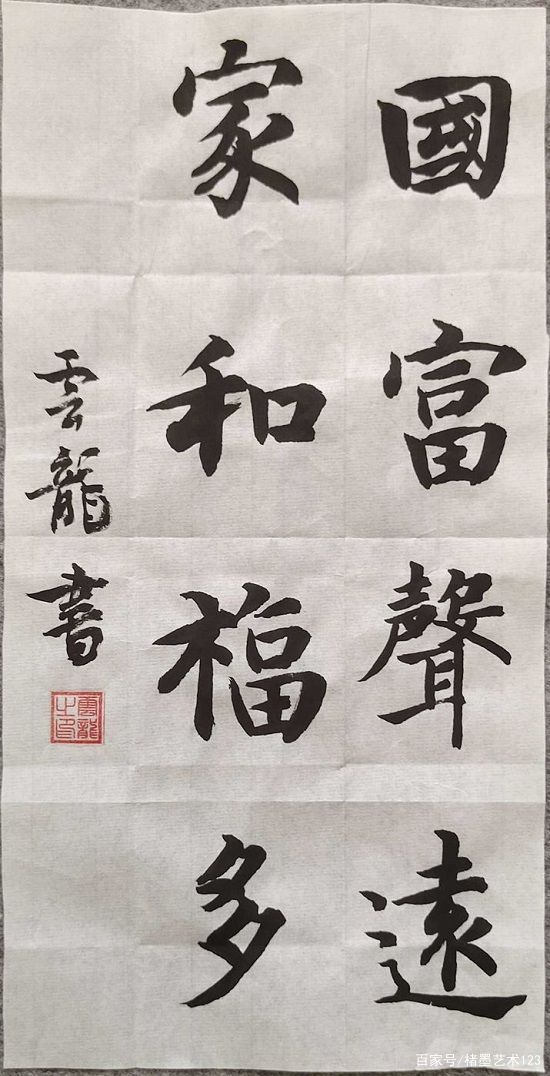 國富聲遠
家和福多
雲龍書
雲龍之印
百家号/楮墨艺术123